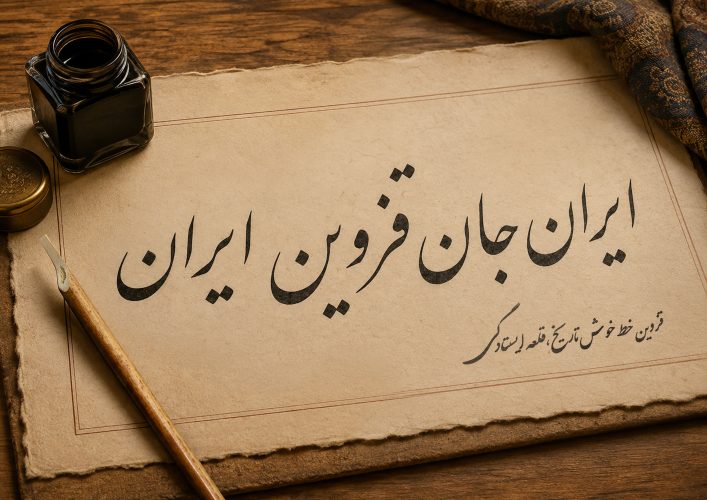 ایران جان قزوین ایران
قزوین خط خوش تاریخ، قلعه ایستادگی